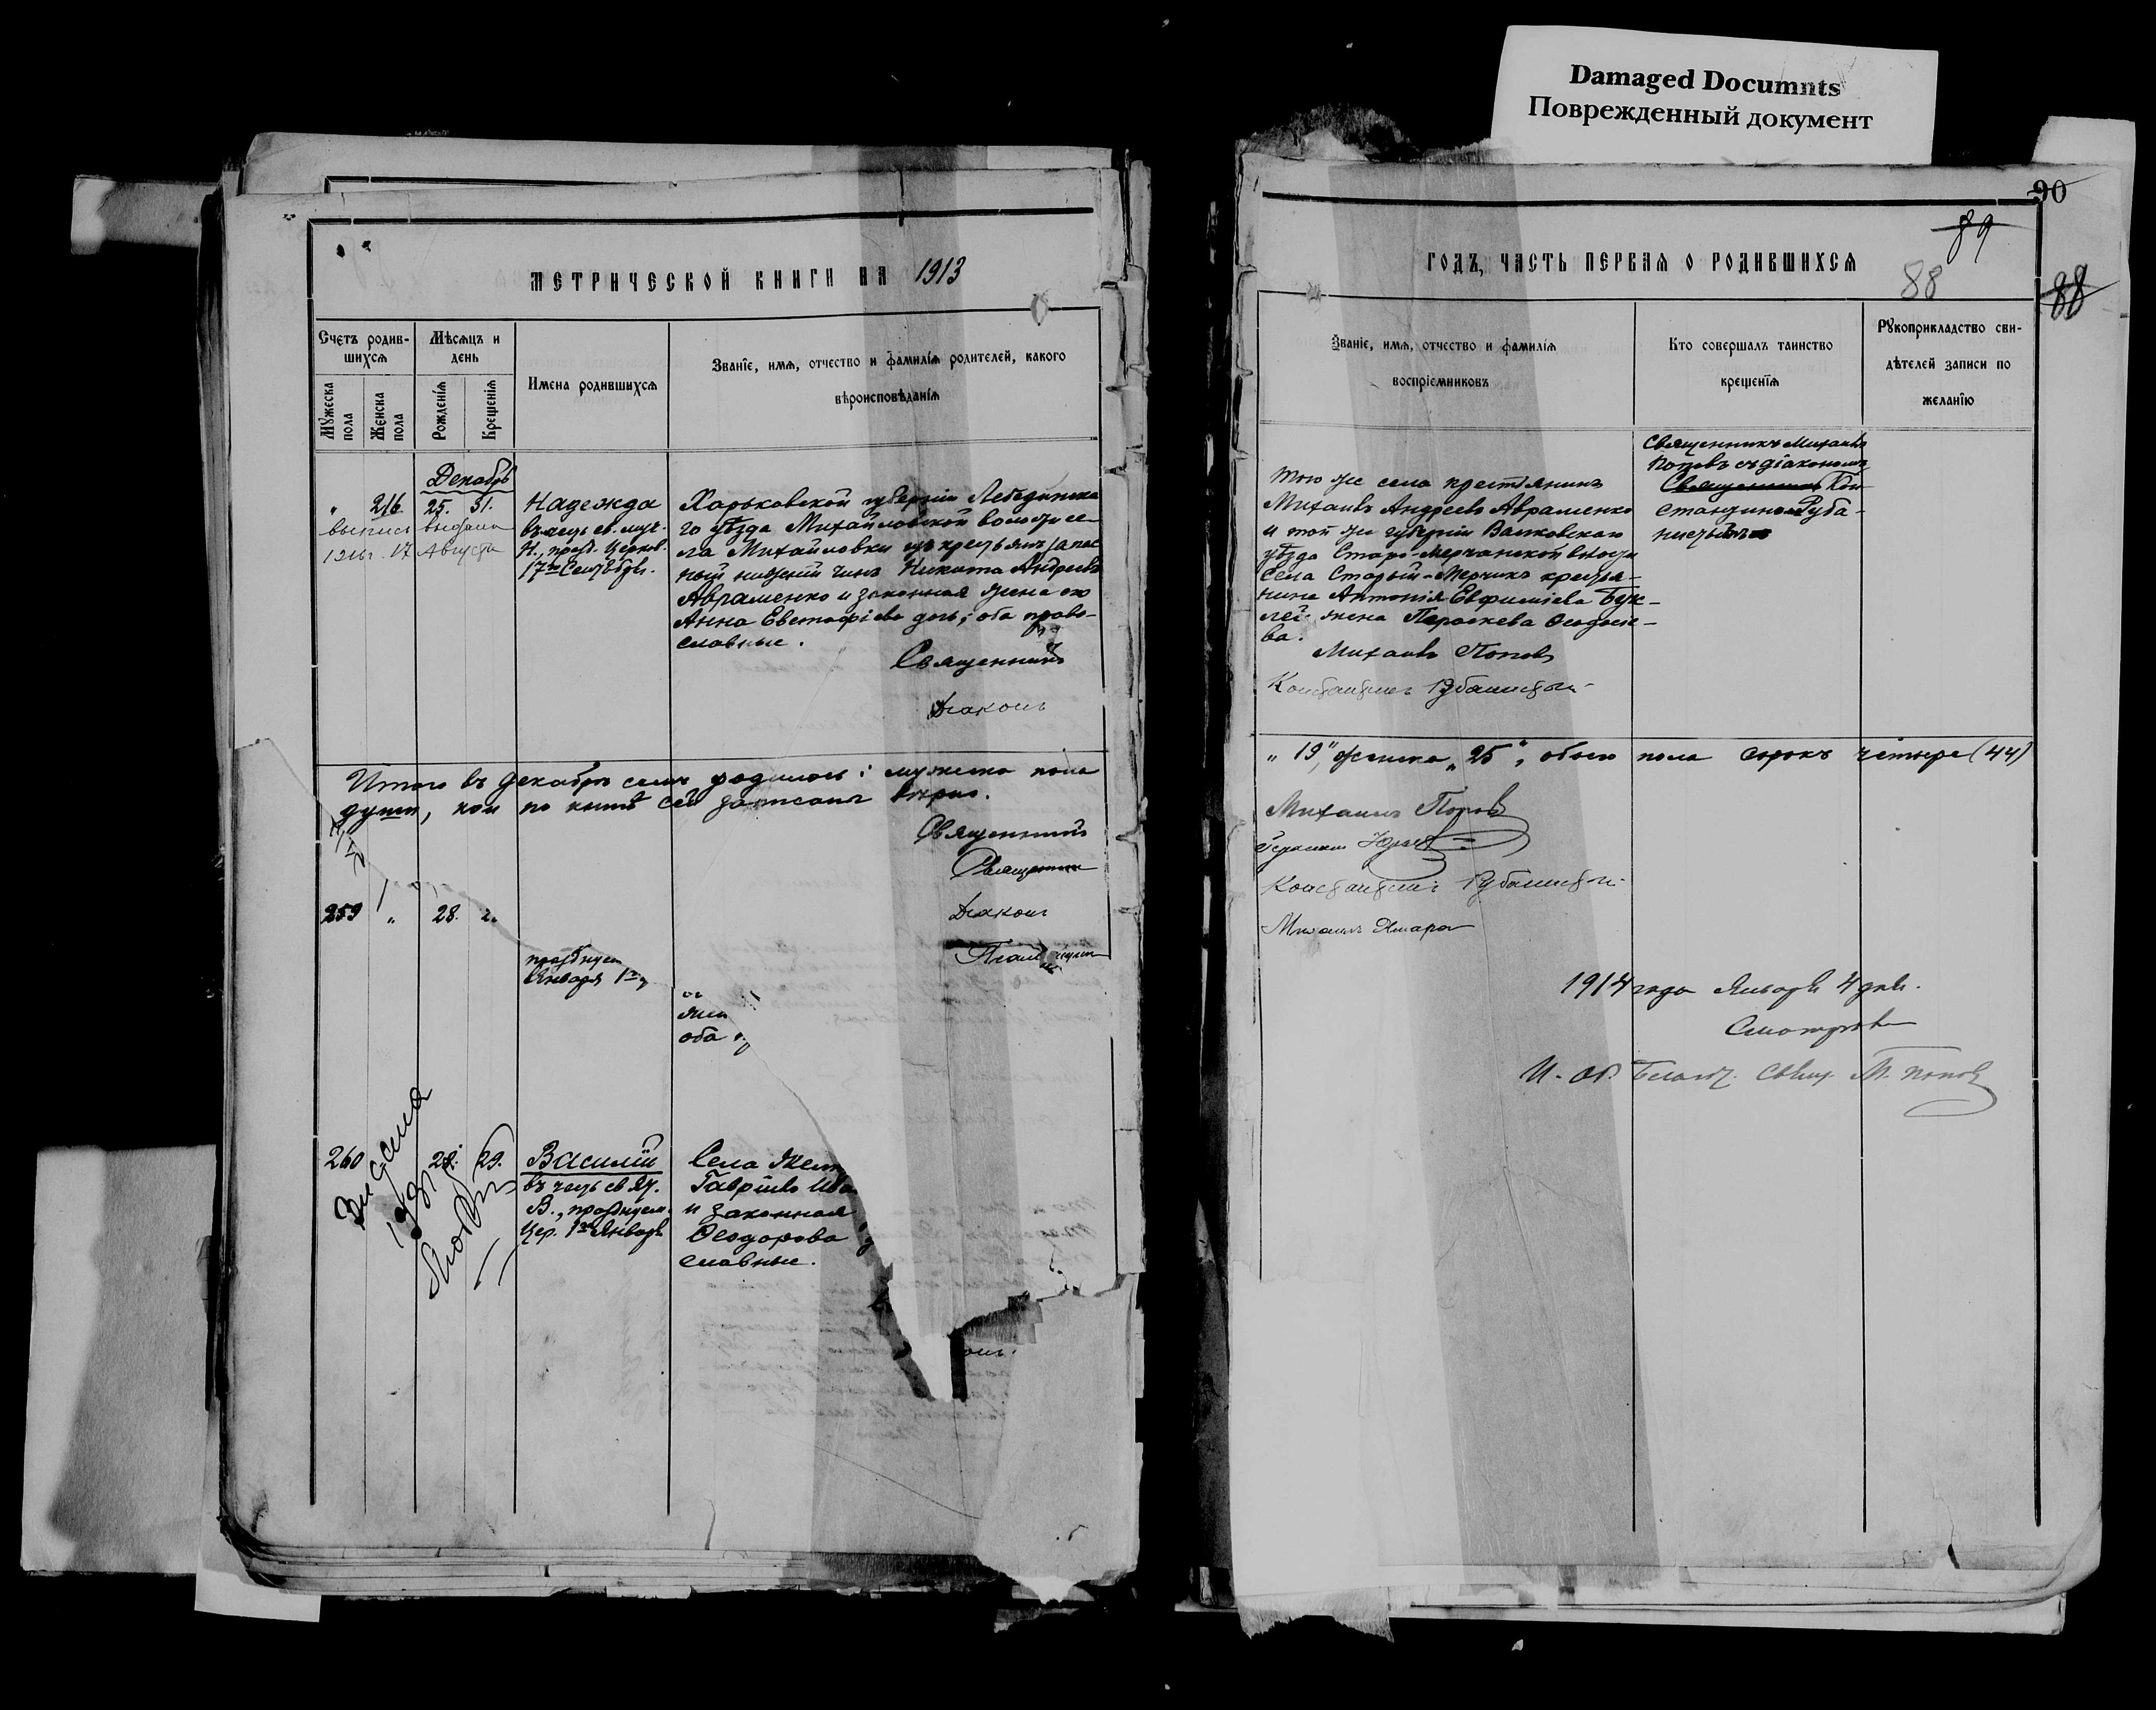 Damaged Documnts
Поврежденный документ
МЕТРИЧЕСКОЙ КНИГИ НА 1913
Счетъ родив-
шихся
Мѣсяцъ и
день
Мужеска
пола
Женска
пола
Рожденія
Крещенія
Имена родившихся
Званіе, имя, отчество и фамилія родителей, какого
вѣроисповѣданія
Декабрь
" 216. 25. 31.
выпись выдана
17 Августа
Надежда
въ честь св. муч.
Н., празд. Церков.
17го Сентября.
Харьковской губерніи Лебединска
го уѣзда Михайловской волости се
ла Михайловки изъ крестьянъ запас
ный нижній чинъ Никита Андреевъ
Авраменко и законная жена его
Анна Евстафіева дочь; оба право-
славные.
Священникъ
Діаконъ
Итого въ Декабрѣ родилось: мужеска пола
душъ, кои по книгѣ сей записаны вѣрно.
Священникъ
Священникъ
Діаконъ
259 " 28.
празднуем
Января 1го
оба
260 28. 29.
Видана
Василій
въ честь св
В., празднуем.
Цер. 1го Января
Села
Гавріилъ Ива
и законная
Ѳеодорова
славные.
90
89
88
88
ГОДЪ, ЧАСТЬ ПЕРВАЯ О РОДИВШИХСЯ
Званіе, имя, отчество и фамилія
воспріемниковъ
Кто совершалъ таинство
крещенія
Рукоприкладство сви-
дѣтелей записи по
желанію
того же села крестьянинъ
Михаилъ Андреевъ Авраменко
и той же губерніи Валковскаго
уѣзда Старо-Мерчанской волости
села Старый-Мерчикъ крестья-
нина Антонія Евфиміева Бук-
лей жена Параскева Ѳеодосіе-
ва.
Михаилъ Поповъ
Священникъ Михаилъ
Поповъ съ діакономъ
Священникъ Кон
стантиномъ Руба-
" 19", женска "25", обоего пола сорокъ четыре (44)
Михаилъ Поповъ
Михаилъ
1914 года Января 4 дня.
Смотрѣлъ
И. об. Благоч. Свящ. М. Поповъ